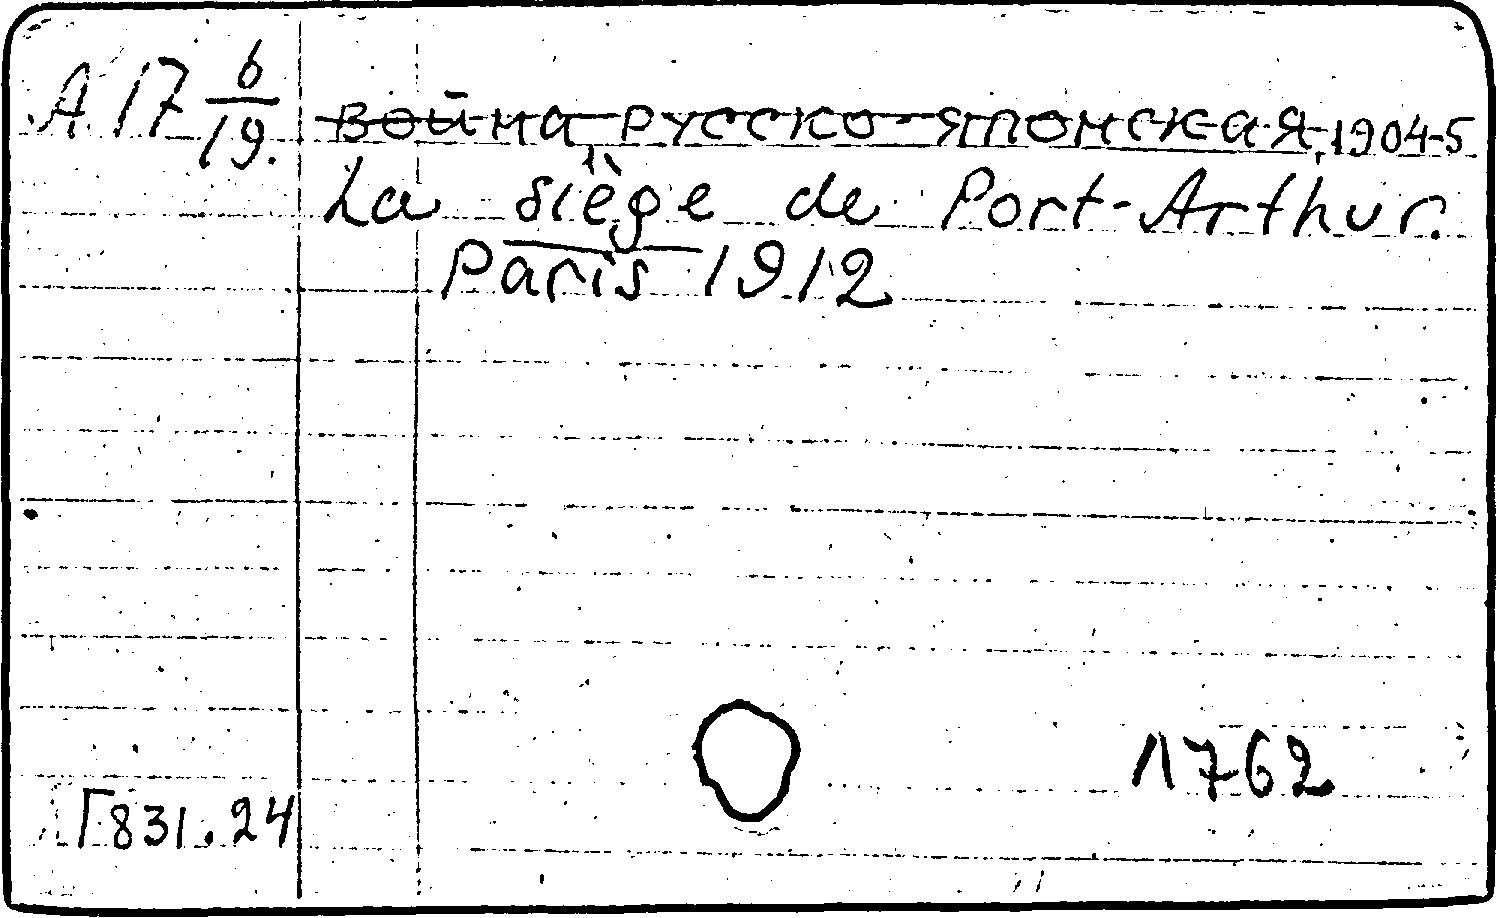 А 17 6/19. война, русско-японская, 1904-5
La siège de Port-Arthur.
Paris 1912
1762
Г831.24